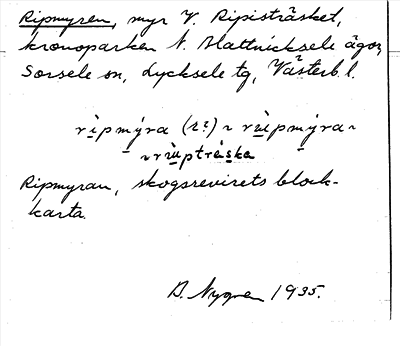 Ripmyren, myr V. Ripisträsket,
kronoparken N. Blattnicksele ägor,
Sorsele sn, Lycksele tg, Västerb. l.
rìpmýra (r?) ~ rùipmýra ~
~ rùiptrǻska
Ripmyran, skogsrevirets block-
karta.
B. Nygren 1935.